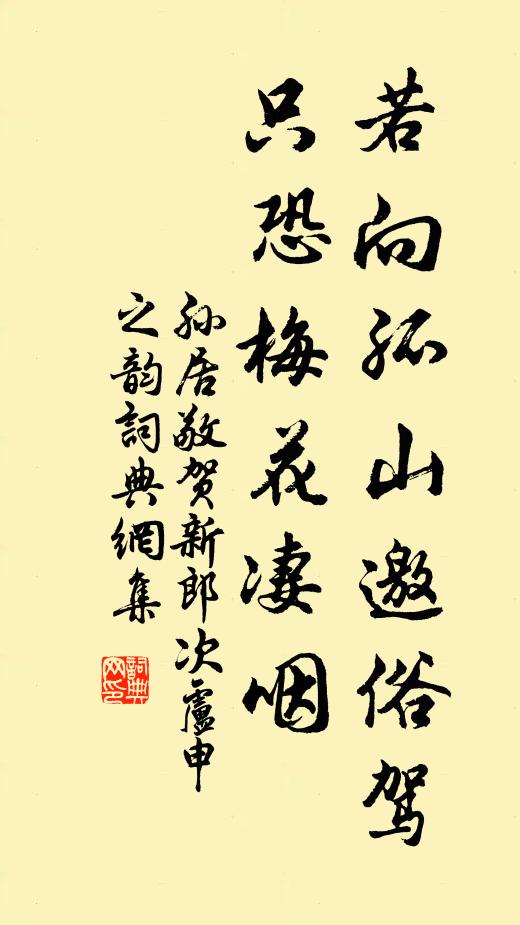 若向孤山邀俗駕
只恐梅花凄咽
孙居敬贺新郎次盧申
之韵詞典網集
詞典網印